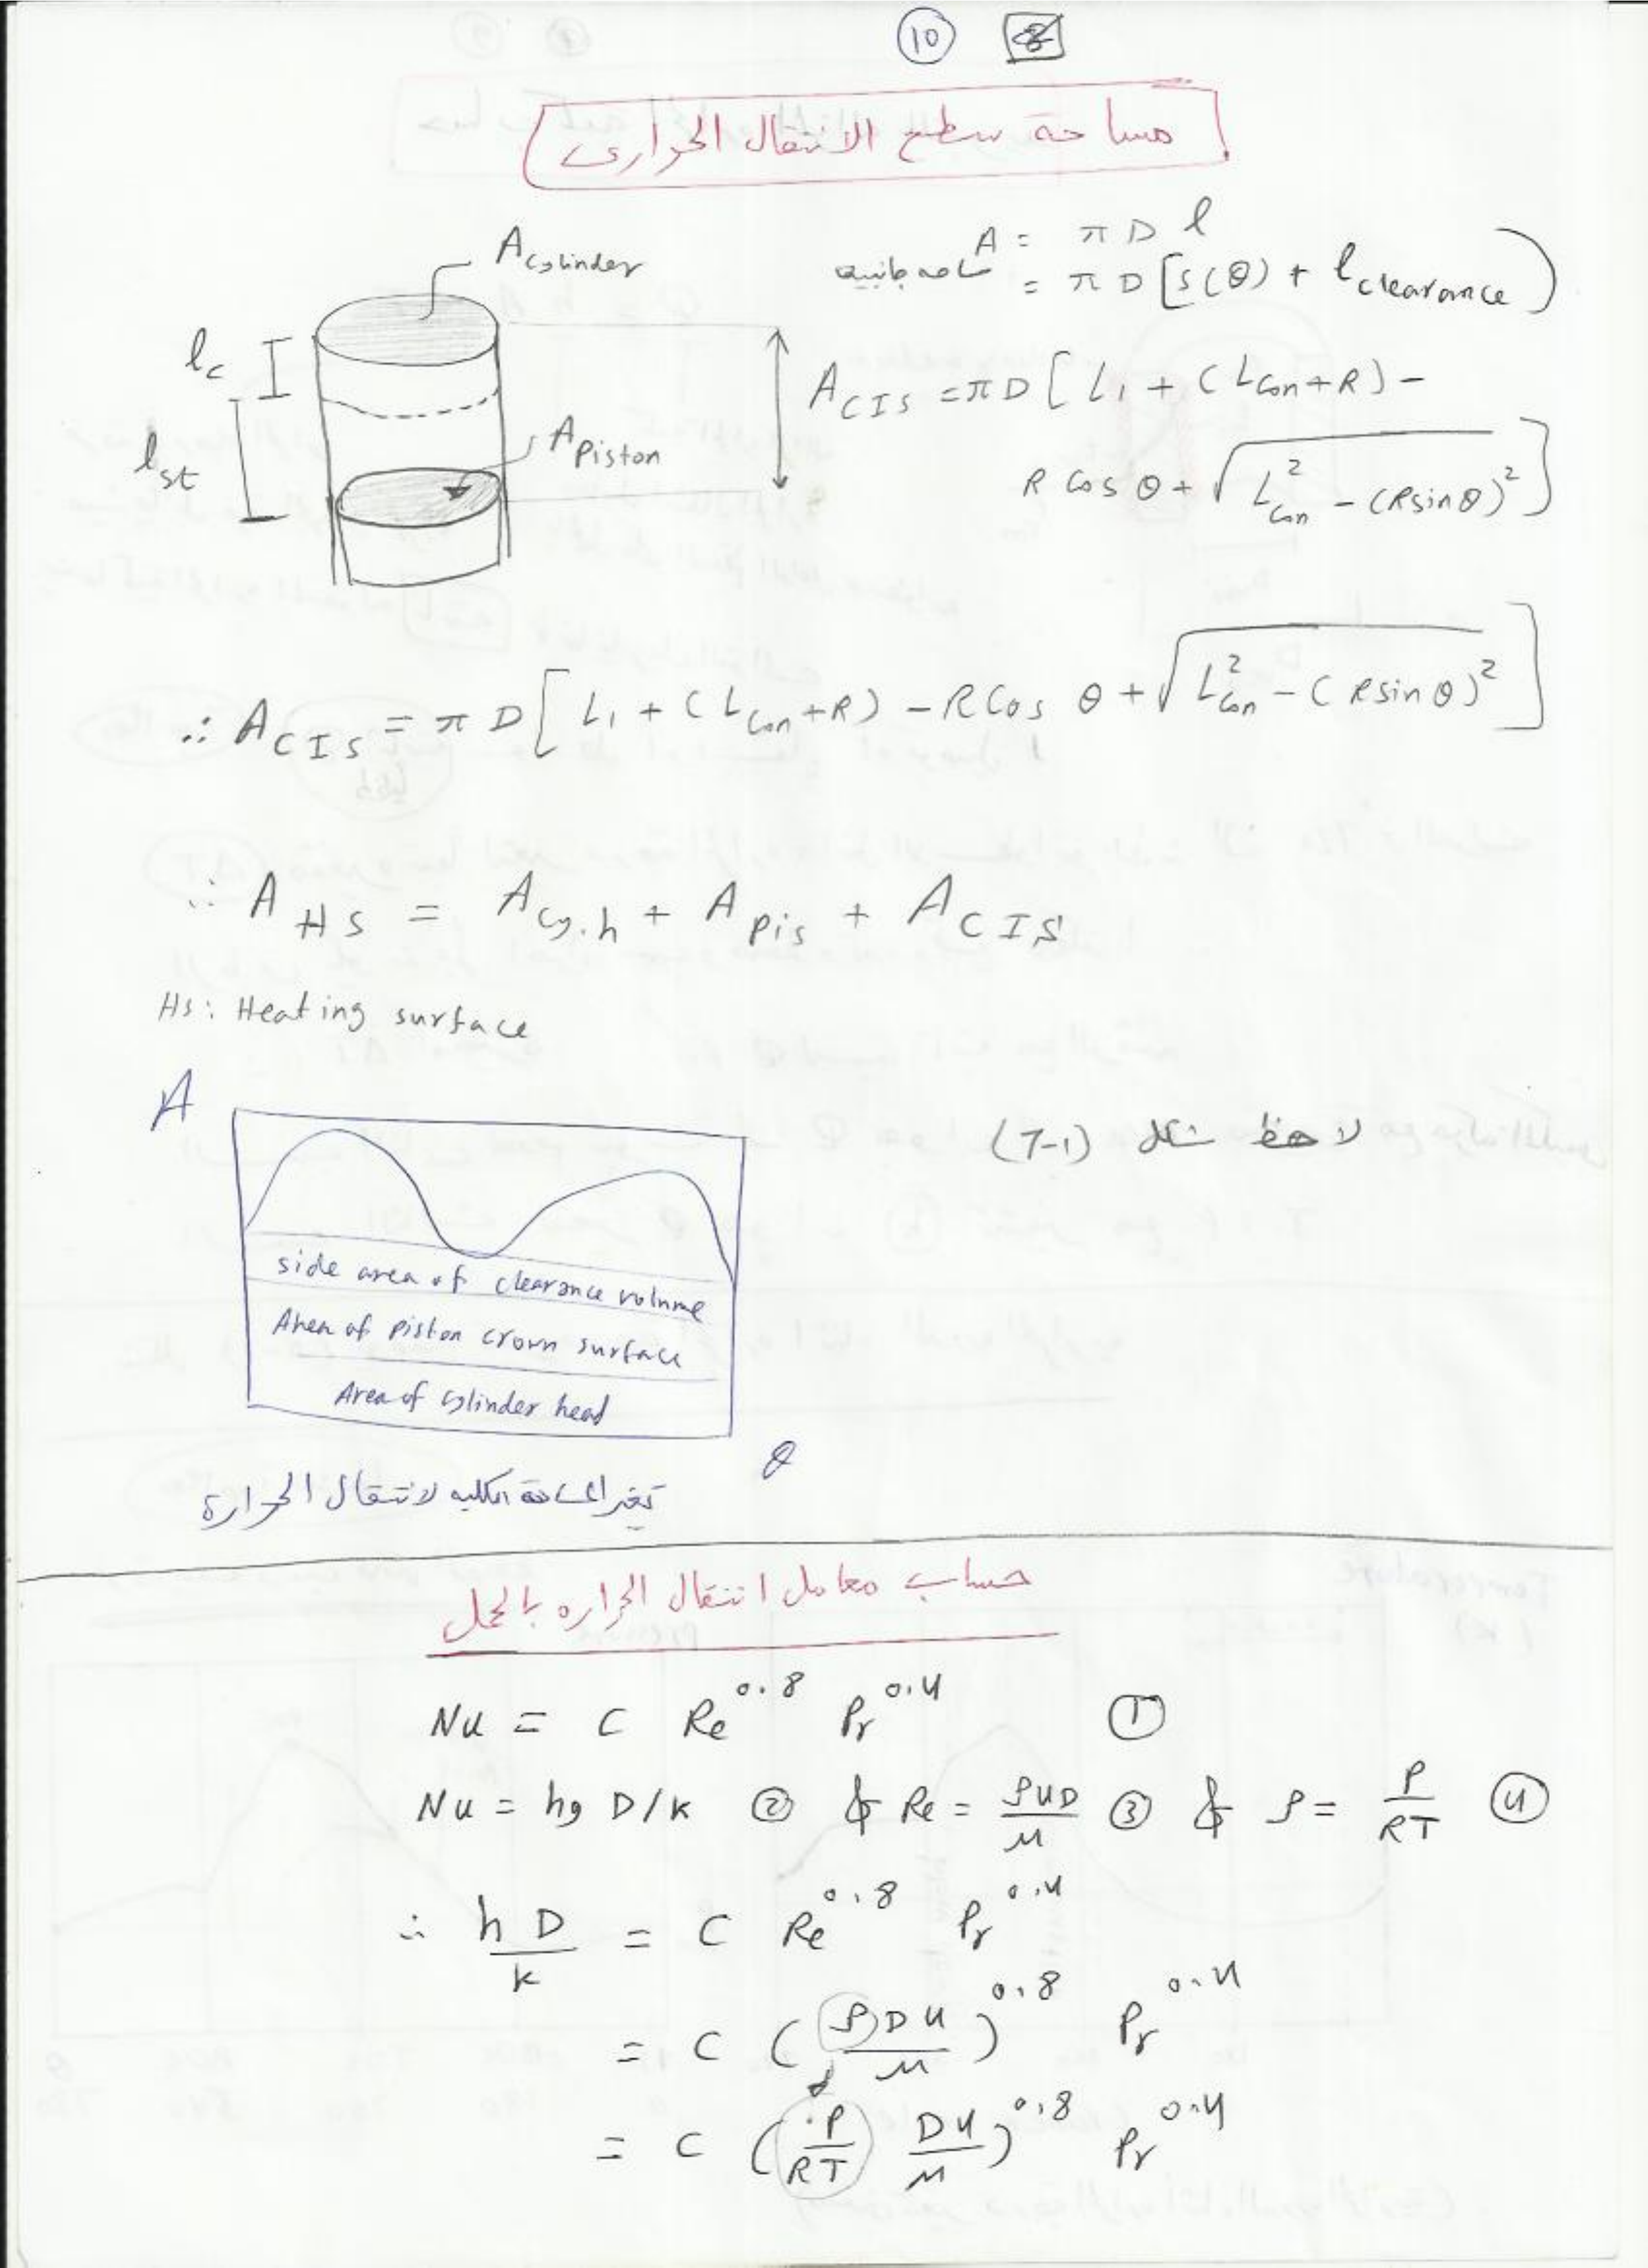 10 8
مساحة سطح الانتقال الحراري
A cylinder
l c
l st
A Piston
A = π D l
مساحه جانبيه = π D [S(θ) + l clearance)
A CIS = π D [ L1 + (L con + R) -
R Cos θ + √(L²con - (R sin θ)²) ]
∴ A CIS = π D [ L1 + (L con + R) - R Cos θ + √(L²con - (R sin θ)²) ]
∴ A HS = A cy.h + A Pis + A CIS
Hs: Heating surface
A
لاحظ شكل (7-1)
side area of clearance volume
Area of piston crown surface
Area of cylinder head
θ
تغير المساحة الكليه لانتقال الحرارة
حساب معامل انتقال الحراره بالحمل
Nu = C Re^0.8 Pr^0.4 ①
Nu = hg D/k ② & Re = ρUD/μ ③ & ρ = P/RT ④
∴ h D / k = C Re^0.8 Pr^0.4
= C (ρ D u / μ)^0.8 Pr^0.4
= C (P/RT Du/μ)^0.8 Pr^0.4